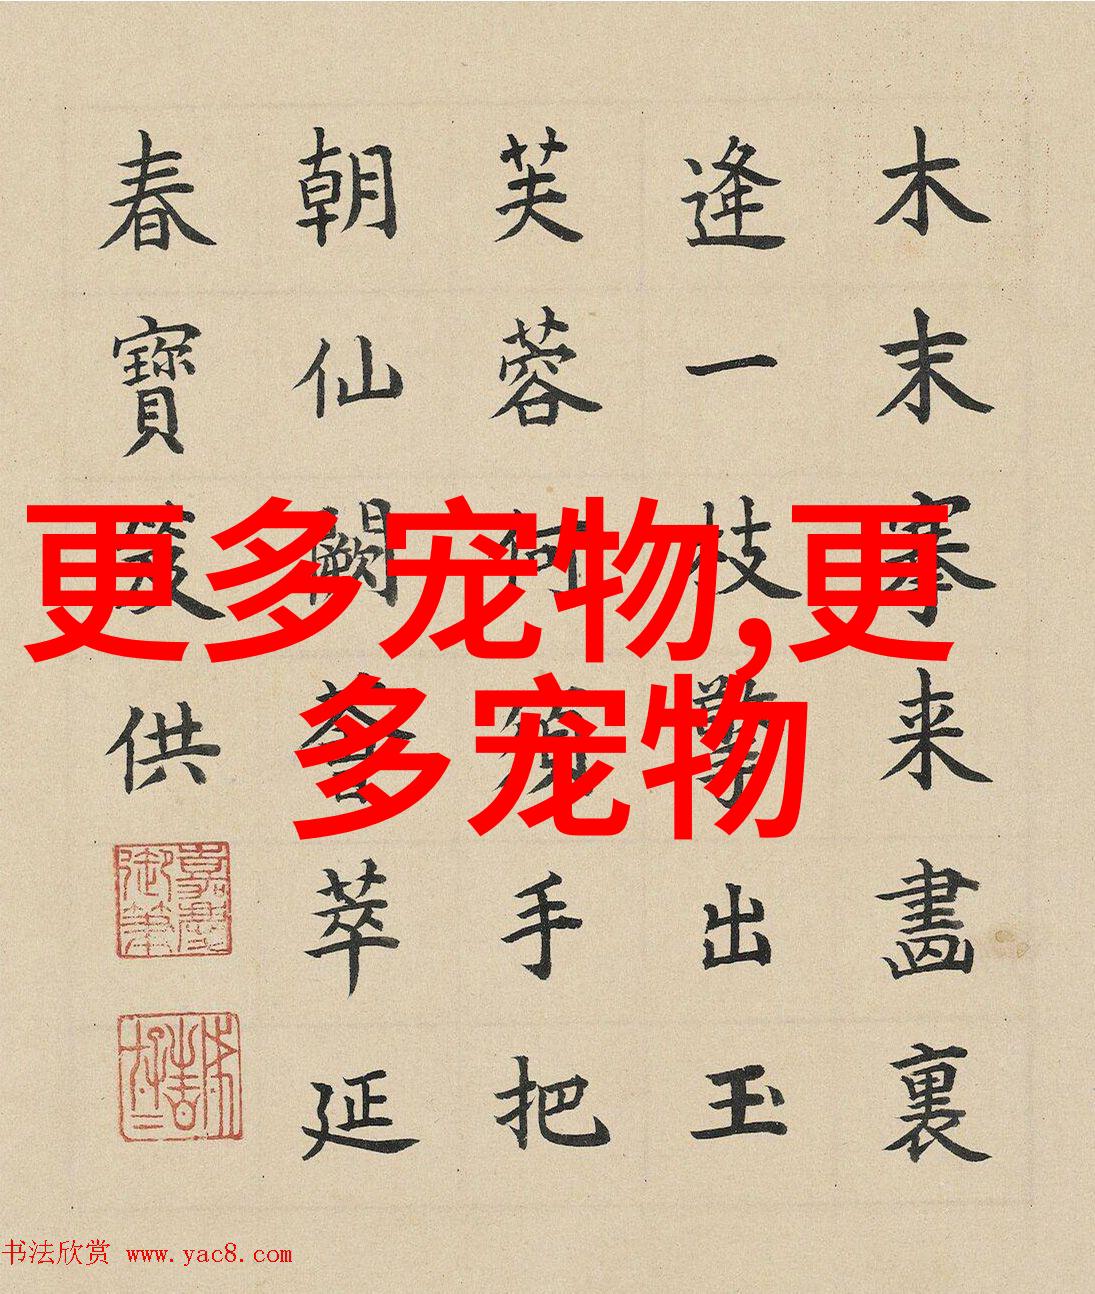 木末搴来畫裏
逢一枝擎出玉
芙蓉何手把
朝仙闕萃延
春寶供
嘉慶御筆
更多宠物,更
多宠物
书法欣赏 www.yac8.com